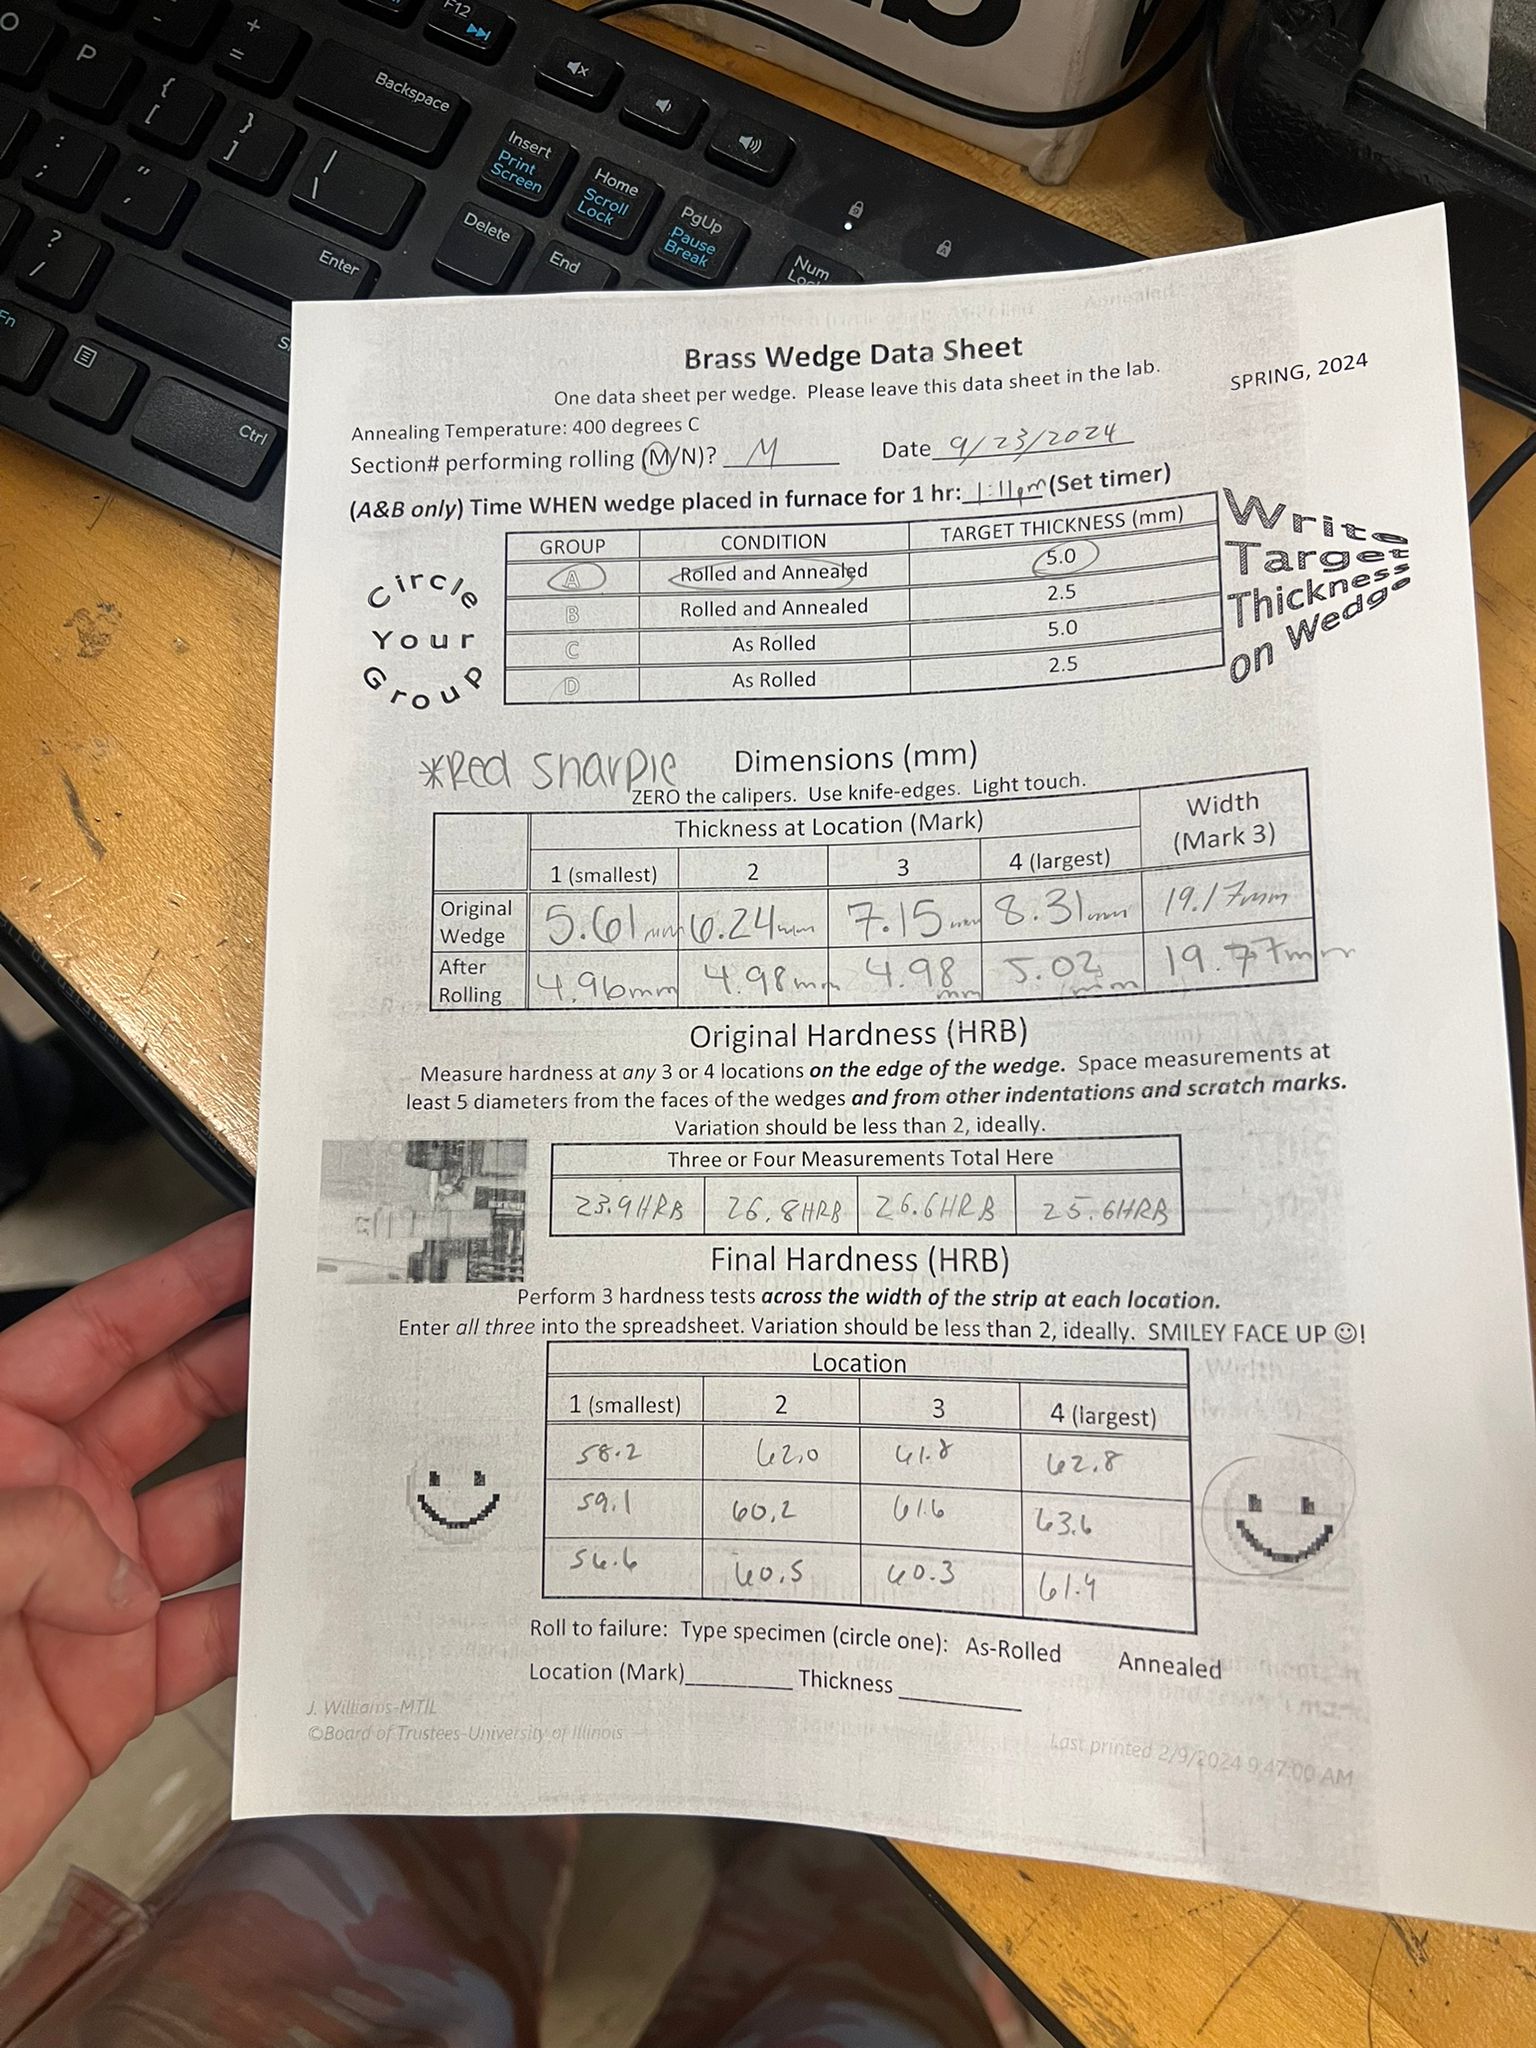 F12
P
+
=
Backspace
{
[
}
]
|
\
:
;
"
,
?
/
Enter
Fn
Ctrl
Insert
Print
Screen
Home
Scroll
Lock
PgUp
Pause
Break
Delete
End
Num
Brass Wedge Data Sheet
One data sheet per wedge. Please leave this data sheet in the lab.
SPRING, 2024
Annealing Temperature: 400 degrees C
Section# performing rolling (M/N)? M Date 9/23/2024
(A&B only) Time WHEN wedge placed in furnace for 1 hr: 1:11pm (Set timer)
Circle
Your
Group
GROUP CONDITION TARGET THICKNESS (mm)
A Rolled and Annealed 5.0
B Rolled and Annealed 2.5
C As Rolled 5.0
D As Rolled 2.5
Write
Target
Thickness
on Wedge
*Red Sharpie
Dimensions (mm)
ZERO the calipers. Use knife-edges. Light touch.
Thickness at Location (Mark) Width (Mark 3)
1 (smallest) 2 3 4 (largest)
Original Wedge 5.61mm 6.24mm 7.15mm 8.31mm 19.17mm
After Rolling 4.96mm 4.98mm 4.98 mm 5.02 mm 19.77mm
Original Hardness (HRB)
Measure hardness at any 3 or 4 locations on the edge of the wedge. Space measurements at
least 5 diameters from the faces of the wedges and from other indentations and scratch marks.
Variation should be less than 2, ideally.
Three or Four Measurements Total Here
23.9HRB 26.8HRB 26.6HRB 25.6HRB
Final Hardness (HRB)
Perform 3 hardness tests across the width of the strip at each location.
Enter all three into the spreadsheet. Variation should be less than 2, ideally. SMILEY FACE UP ☺!
Location
1 (smallest) 2 3 4 (largest)
58.2 62.0 61.8 62.8
59.1 60.2 61.6 63.6
56.6 60.5 60.3 61.4
Roll to failure: Type specimen (circle one): As-Rolled Annealed
Location (Mark)________ Thickness ________
J. Williams-MTIL
©Board of Trustees-University of Illinois
Last printed 2/9/2024 9:47:00 AM